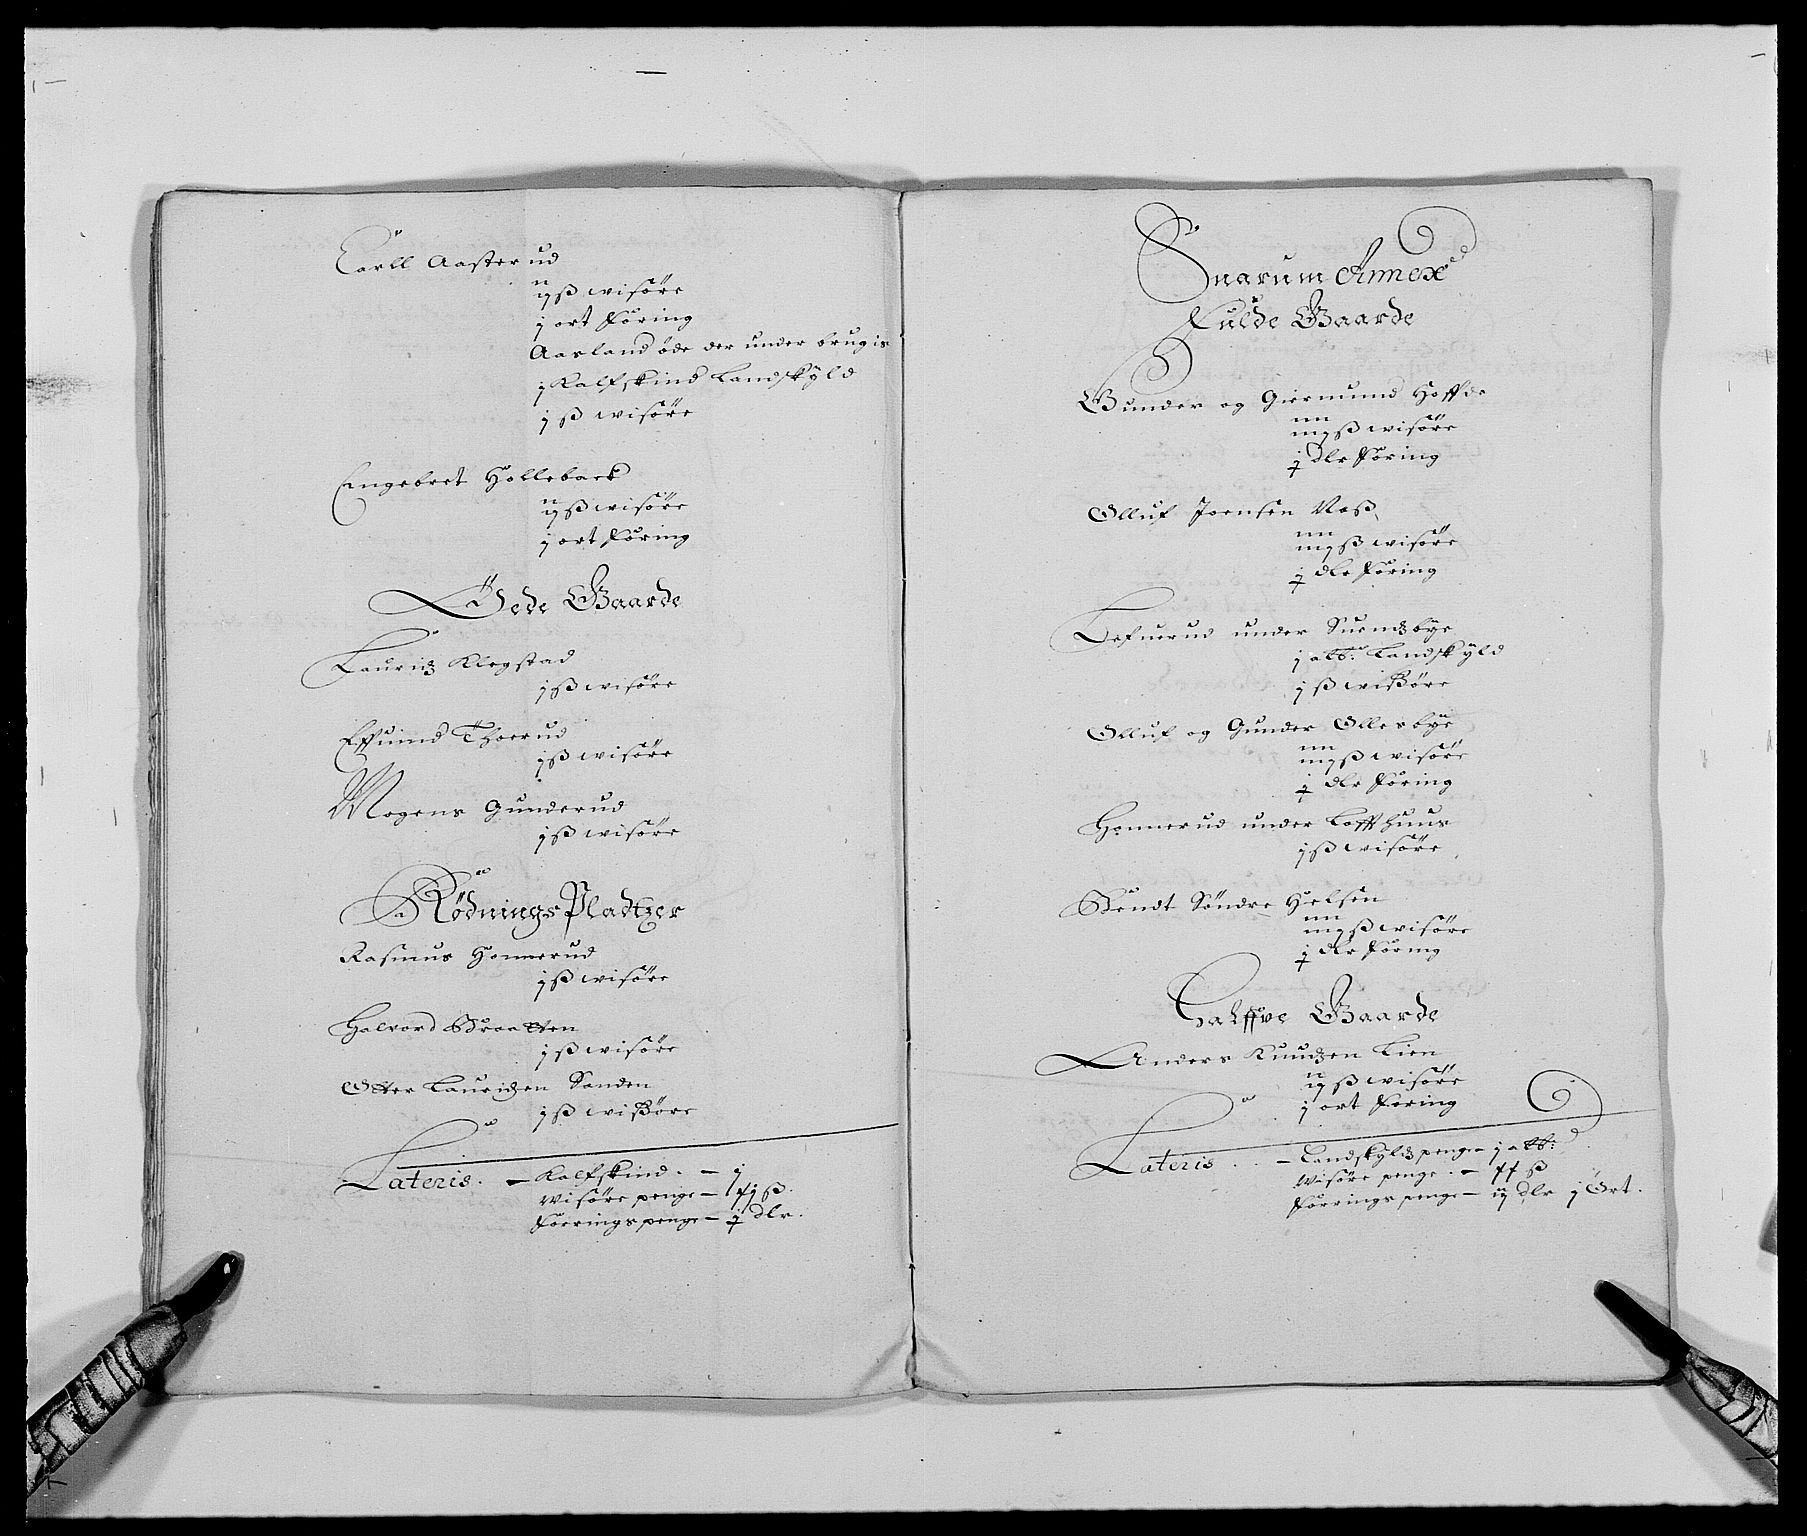 Carll Aasterud
ij ß wisöre
j ort Föring
Aasland öde der under brugis
j Kalfskind Landskyld
j ß wisöre
Engebret Holleback
ij ß wisöre
j ort Föring
Öede Gaarde
Lauridz Klegstad
j ß wisöre
Effuind Thoerud
j ß wisöre
Mogens Gunderud
j ß wisöre
Rödnings Pladtzer
Rasmus Honnerud
j ß wisöre
Halvord Braatten
j ß wisöre
Otter Lauridzen Sanden
j ß wißöre
Lateris. — Kalfskind. — j
Wisöre penge —
Foerings penge — dlr.
Snarum Annex
Fulde Gaarde
Gunder og Giermund Hoffde
iiij ß wisöre
dlr Föring
Olluf Joensen Raß
iiij ß wisöre
dlr Föring
Lefuerud under Suendzbye
j alb: Landskyld
j ß wißöre
Olluf og Gunder Ollesbye
iiij ß wisöre
dlr Föring
Honnerud under Loffthuus
j ß wisöre
Bendt Söndre Hielsen
iiij ß wisöre
dlr Föring
Halffve Gaarde
Anders Knudzen Lien
ij ß wisöre
j ort Foring
Lateris .. — Landskyldz penge — j alb:
Wisöre penge. — ß
Förrings penge — ij dlr j Ort.